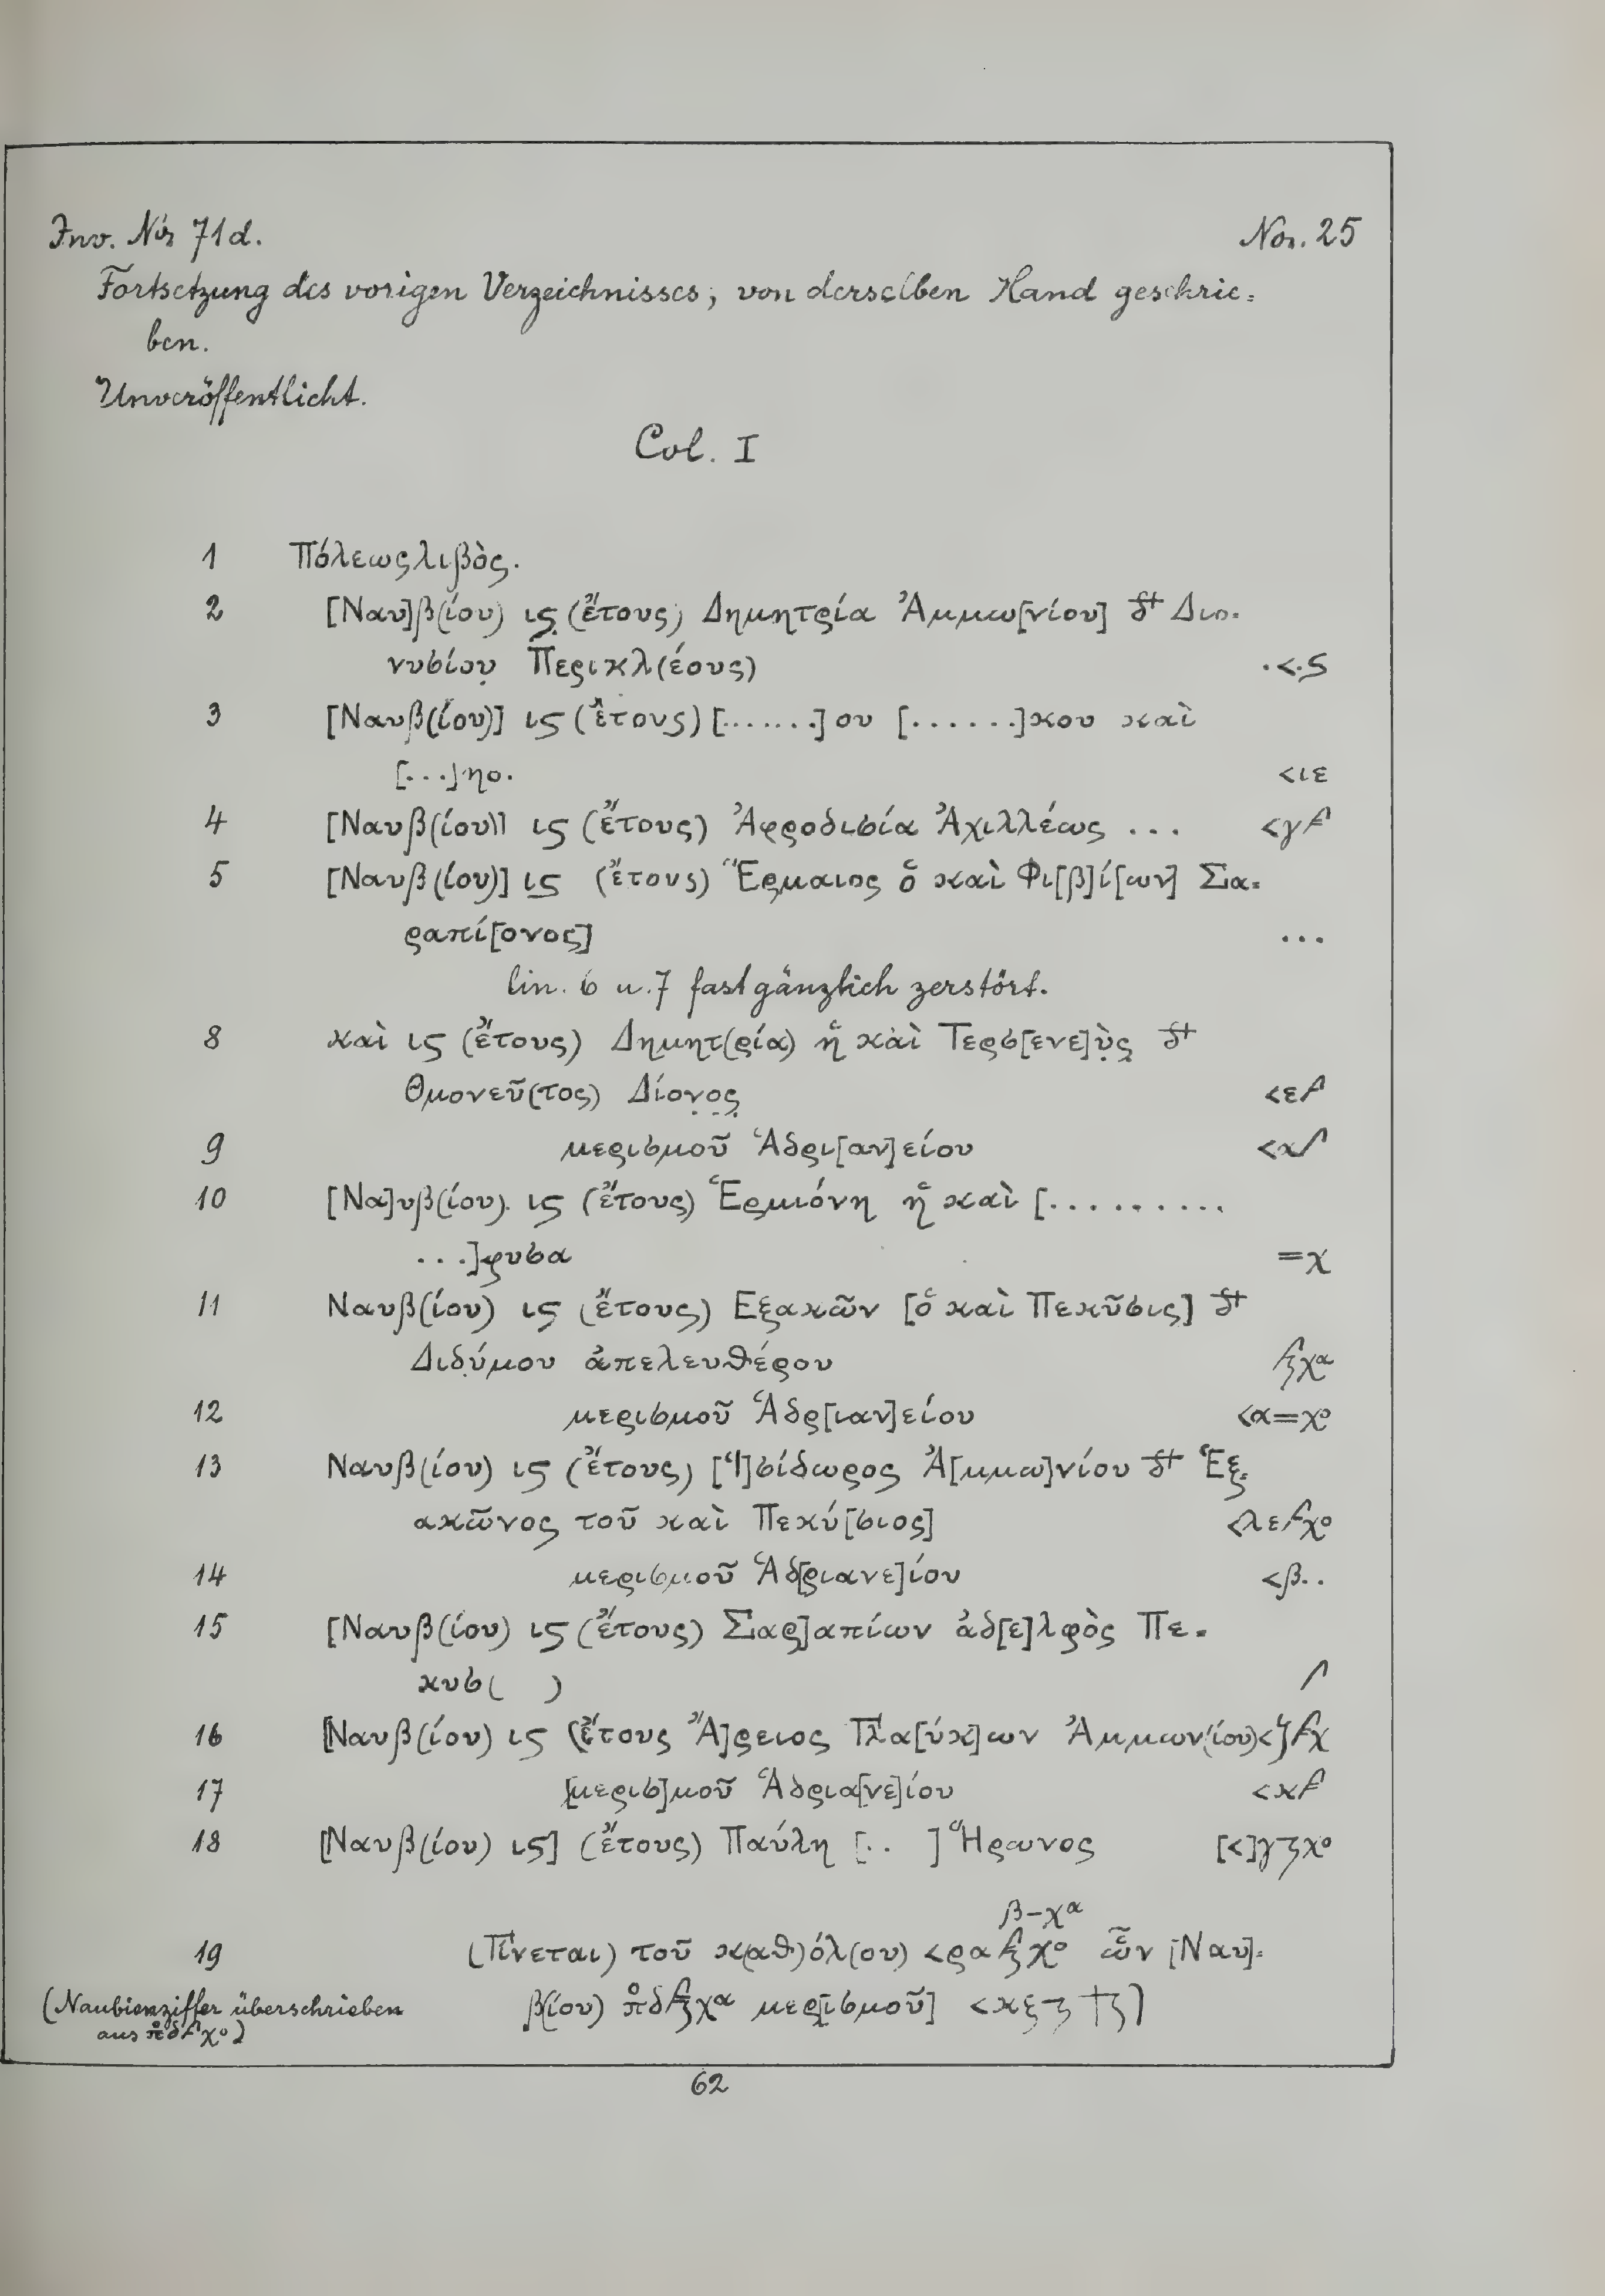 Inv. Nr. 71d. Nor. 25
Fortsetzung des vorigen Verzeichnisses; von derselben Hand geschrie=
ben.
Unveröffentlicht.
Col. I
1 Πόλεως λιβὸς.
2 [Ναυ]β(ίου) ις (ἔτους) Δημητρία Ἀμμω[νίου] δ+ Διο=
νυσίου Περικλ(έους) .<.ς
3 [Ναυβ(ίου)] ις (ἔτους) [.......]ου [......]κου καὶ
[...]ηο. <ιε
4 [Ναυβ(ίου)] ις (ἔτους) Ἀφροδισία Ἀχιλλέως ... <γ
5 [Ναυβ(ίου)] ις (ἔτους) Ἕρμαιος ὁ καὶ Φι[β]ί[ων] Σα=
ραπί[ονος] ...
lin. 6 u. 7 fast gänzlich zerstört.
8 καὶ ις (ἔτους) Δημητ(ρία) ἡ καὶ Τερσ[ενε]ὺς δ+
Θμονεῦ(τος) Δίονος <ε
9 μερισμοῦ Ἁδρι[αν]είου <κ
10 [Να]υβ(ίου) ις (ἔτους) Ἑρμιόνη ἡ καὶ [..........
...]φυσα =χ
11 Ναυβ(ίου) ις (ἔτους) Εξακῶν [ὁ καὶ Πεκῦσις] δ+
Διδύμου ἀπελευθέρου χα
12 μερισμοῦ Ἁδρ[ιαν]είου <α=χο
13 Ναυβ(ίου) ις (ἔτους) [Ἰ]σίδωρος Ἀ[μμω]νίου δ+ Ἑξ=
ακῶνος τοῦ καὶ Πεκύ[σιος] <λεχο
14 μερισμοῦ Ἁδ[ριανε]ίου <β..
15 [Ναυβ(ίου) ις (ἔτους) Σαρ]απίων ἀδ[ε]λφὸς Πε=
κυσ( )
16 [Ναυβ(ίου) ις (ἔτους Ἄ]ρειος Γλα[ύκ]ων Ἀμμων(ίου) <ζχ
17 [μερισ]μοῦ Ἁδρια[νε]ίου <κ
18 [Ναυβ(ίου) ις] (ἔτους) Παύλη [.. ] Ἥρωνος [<]γχο
β–χα
19 (Γίνεται) τοῦ κ(αθ)όλ(ου) <ραχο ὧν [Ναυ]=
(Naubienziffer überschrieben β(ίου) πδχα μερ[ισμοῦ] <κξ
aus πδχο)
62